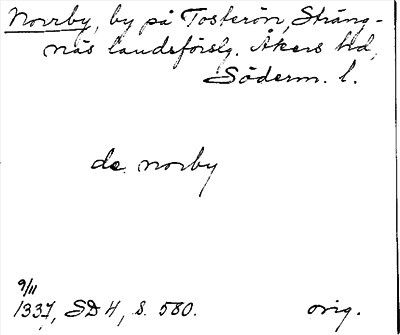 Norrby, by på Tosterön, Sträng-
näs landsförsg. Åkers hd,
Söderm. l.
de norby
9/11
1337, SD 4, s. 580. orig.